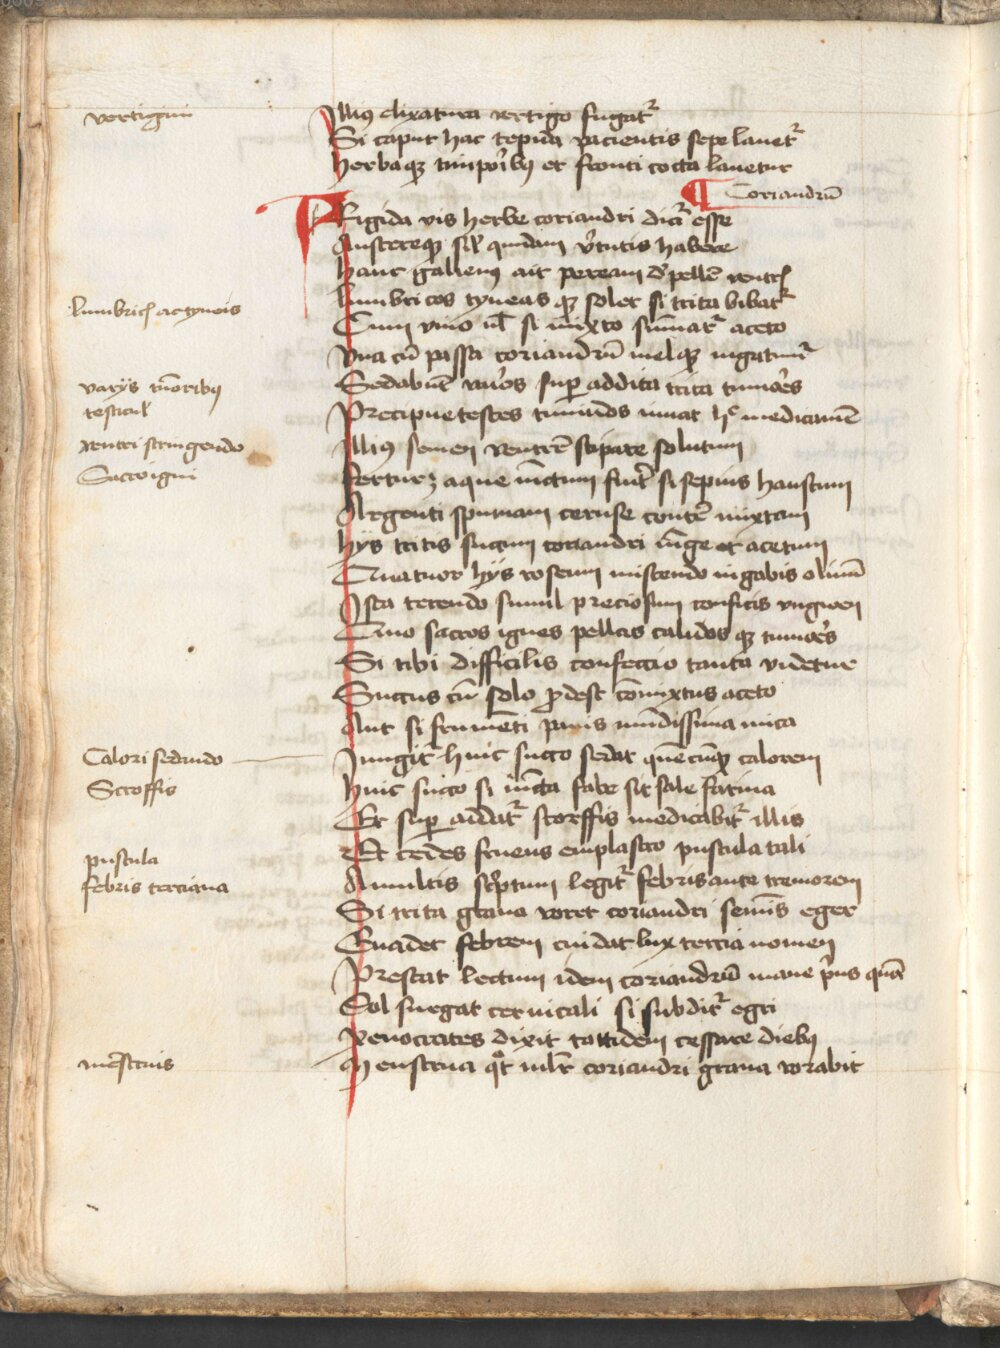 vertigini
Illiꝰ elixatura vertigo fugatᷣ
Si caput hac tepida pacientis sepe lauetᷣ
Herbaqꝫ timporibꝫ et fronti cocta lauetur
¶ Coriandrū
Frigida vis herbe coriandri dicit᷑ esse
Austereqꝫ sil' quidam v̓tutis habere
Hanc galienꝰ ait peream depellē ventrꝭ
lumbricꝭ ac tyneis
Lumbricos tyneas qꝫ solet si trita bibatᷣ
Cum vino ul̄ si mixto sūmatᷣ aceto
Vna cū passa coriandrū melqꝫ iugatumᷣ
varijs tūoribꝫ
Sedabūt varios sup̲ addita trita tumores
testicul'
Precipue testes tumidos iuuat hͦ medicamē
ventri stringendo
Illiꝰ semen ventrē stipare solutum
Sacro igni
Ferturꝫ aque iūctum fuit̓ si sepius haustum
Argenti spumam ceruse conter̄ mixtam
Hijs tritis succum coriandri iūge et acetum
Quatuor hijs roseum miscendo iugabis oliuū
Ista terendo simul preciosum conficis vnguen
Quo sacros ignes pelles calidos qꝫ tumores
Si tibi difficilis confeccio tanta videtur
Succus cū solo ꝓdest cōmixtus aceto
Aut si frumēti panis mūdissima mica
Calori sedando
Iungit᷑ huic succo sedat quēcūqꝫ calorem
Scroffis
Huic succo si iūcta fabe sit sale farina
Et sup̲ addatᷣ scorffis medicabitᷣ illis
pustula
Et cedes frueus emplastro pustula tali
febris terciana
A multis scͥptum legitᷣ febris ante tremorem
Si trita grana voret coriandri semīs eger
Euadet febrem cui dat lux tercia nomen
Prestat lectum idem coriandrū mane pͥus quā
Sol surgat ceruicali si subditᷣ egri
Xenocrates dixit tottidem cessare diebꝫ
mēstruis
Menstrua qͦt mlr̄ coriandri grana vorabit